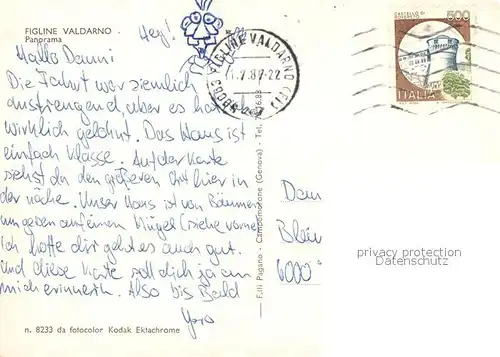 FIGLINE VALDARNO
Panorama
Hey!
Hallo Danni
Die Fahrt war ziemlich
anstrengend, aber es hat
wirklich gelohnt. Das Haus ist
einfach klasse. Auf der Karte
siehst du den größeren Ort hier in
der nähe. Unser Haus ist von Bäumen
umgeben auf einem Hügel (siehe vorne
ich hoffe dir geht es auch gut.
und diese Karte soll dich ja an
mich erinnern. Also bis Bald
n. 8233 da fotocolor Kodak Ektachrome
F.lli Pagano - Campomorone (Genova) - Tel.
FIGLINE VALDARNO (FI)
.7.87-22
CASTELLO DI
ROVERETO
500
ITALIA
6000
privacy protection
Datenschutz